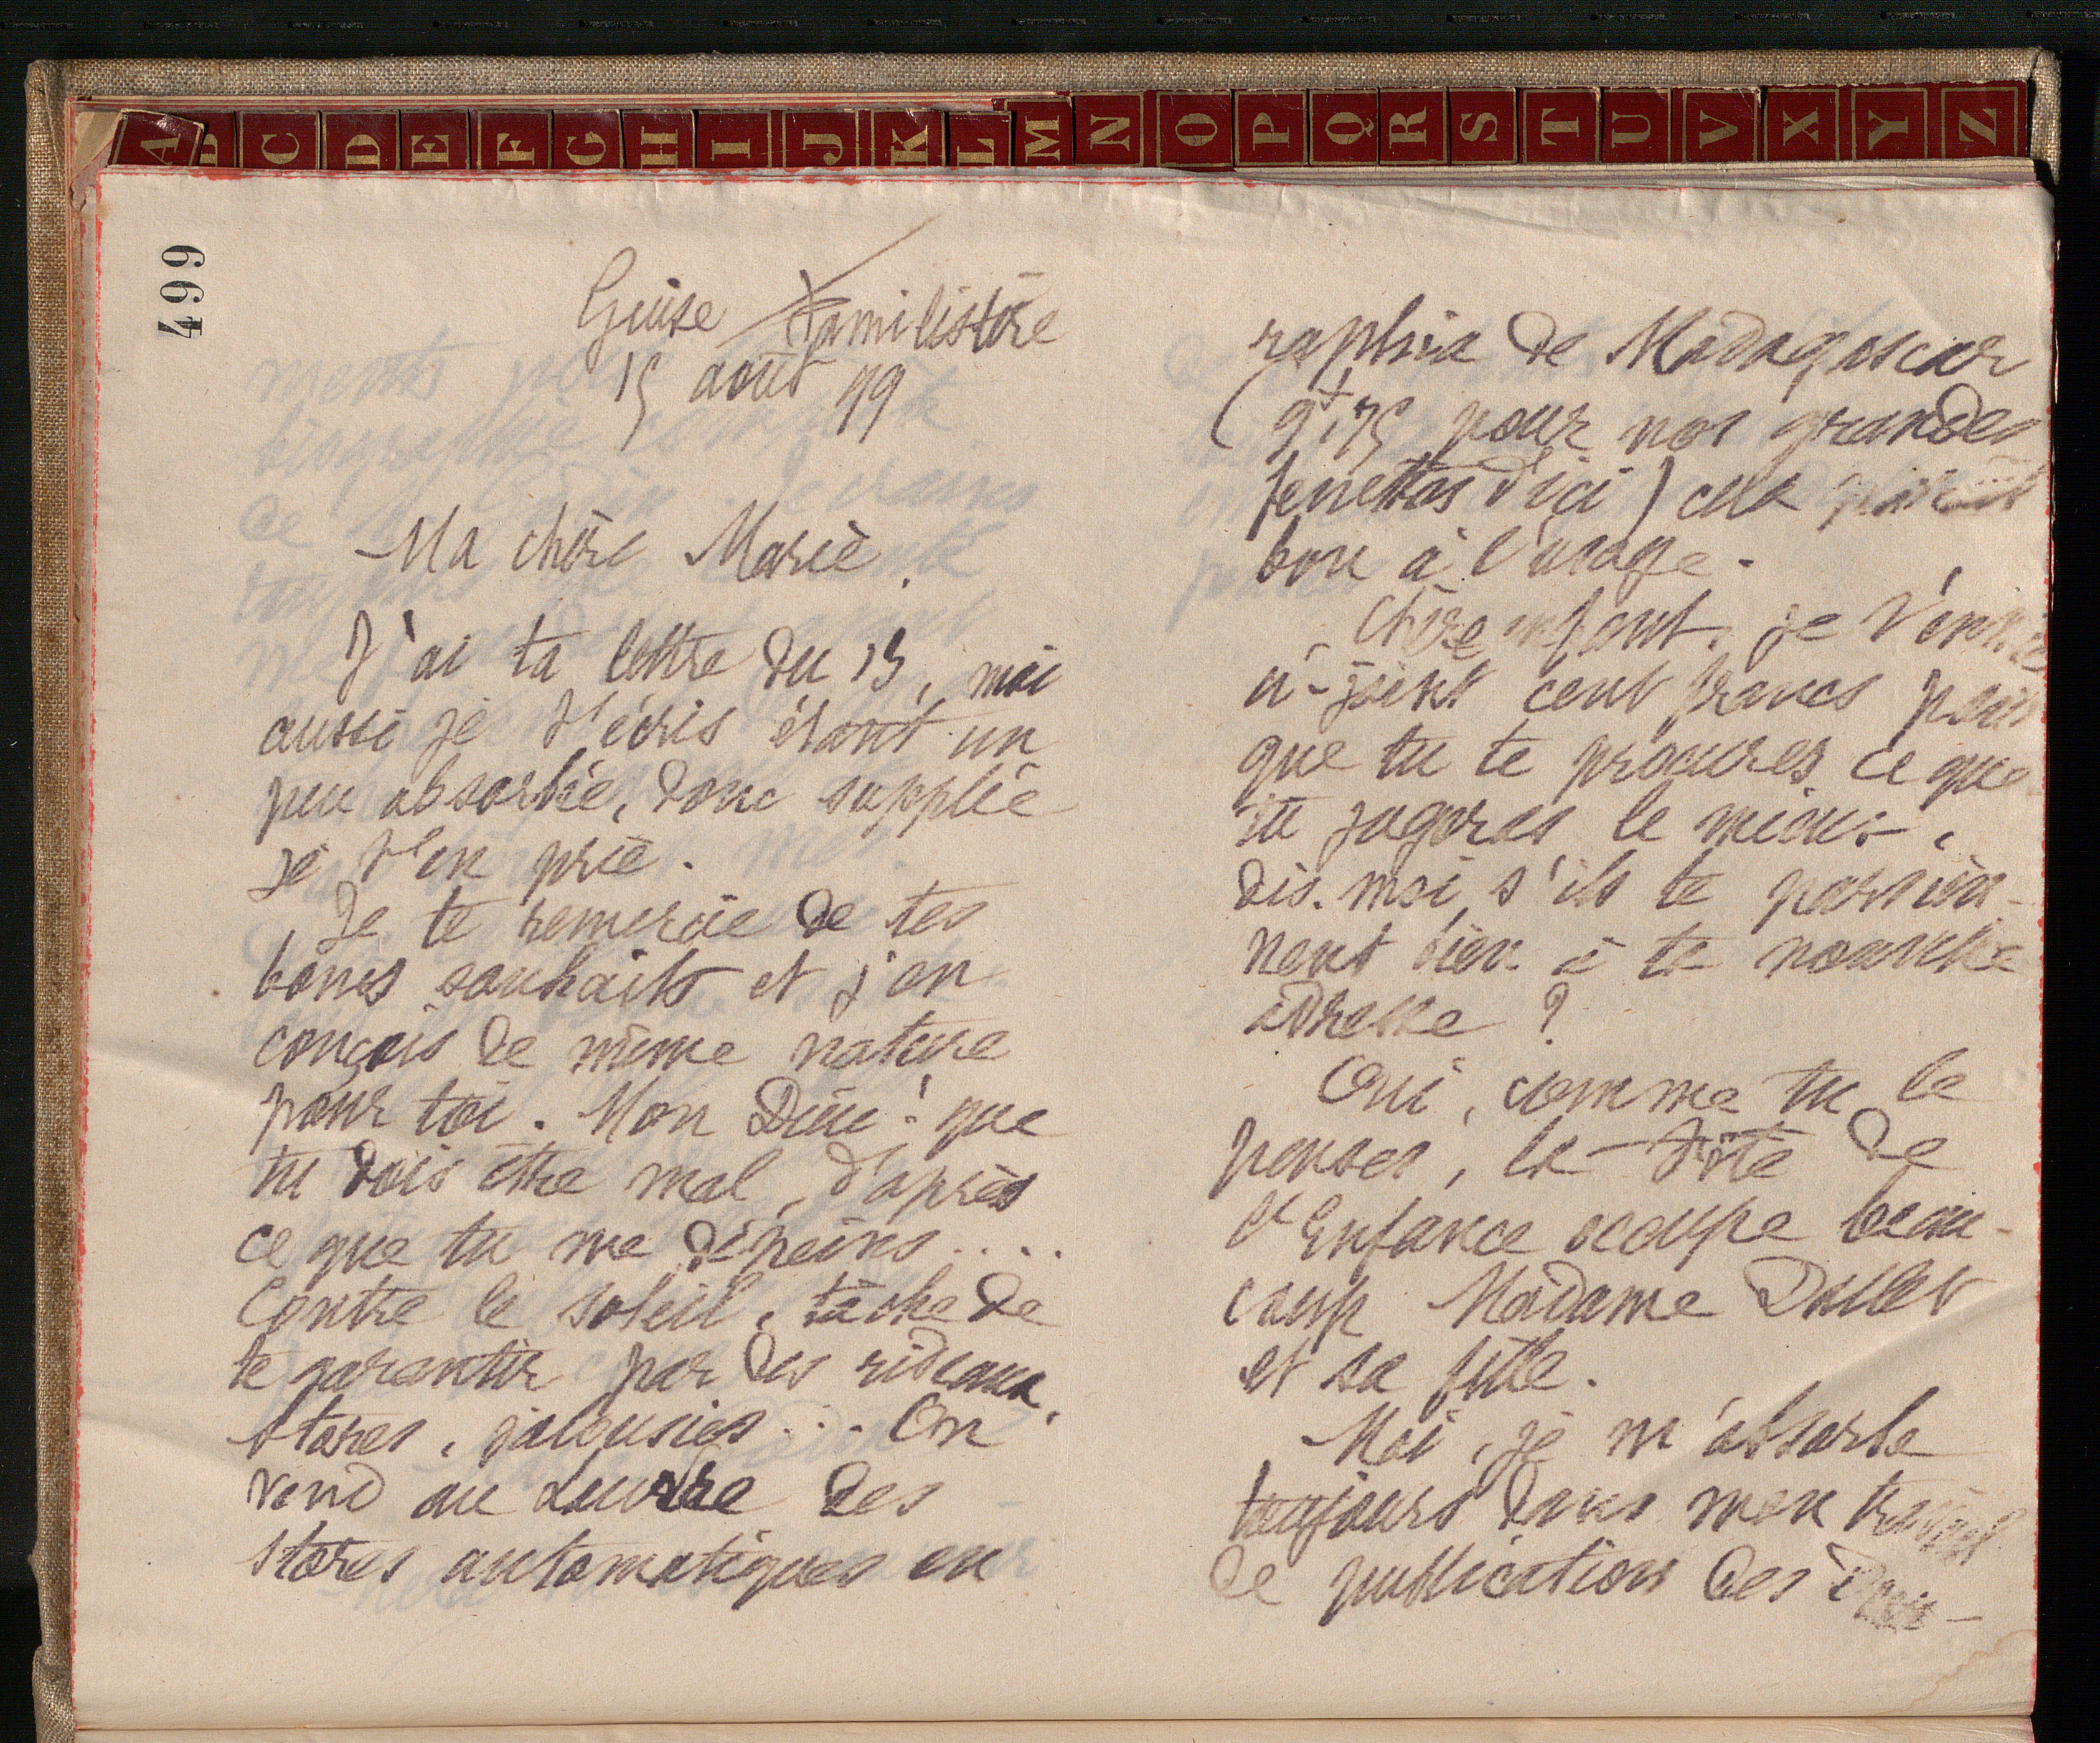 A B C D E F G H I J K L M N O P Q R S T U V X Y Z
499
Guise Familistère
15 août 99
Ma chère Marie,
J'ai ta lettre du 13, moi
aussi je t'écris étant un
peu absorbée, donc supplée
je t'en prie.
Je te remercie de tes
bons souhaits et j'en
conçois de même nature
pour toi. Mon Dieu! que
tu dois être mal, d'après
ce que tu me dépeins....
Contre le soleil, tâche de
te garantir par des rideaux,
stores, jalousies... On
vend au Louvre des
stores automatiques en
raphia de Madagascar
(9f,75 pour nos grandes
fenêtres d'ici) cela paraît
bon à l'usage.
Chère enfant, je t'envoie
ci-joint cent francs pour
que tu te procures ce que
tu jugeras le mieux,
dis-moi s'ils te parvien-
nent bien à ta nouvelle
adresse ?
Oui, comme tu le
penses, la Fête de
l'Enfance occupe beau-
coup Madame Dallet
et sa fille.
Moi, je m'absorbe
toujours dans mon travail
de publication des Docu-